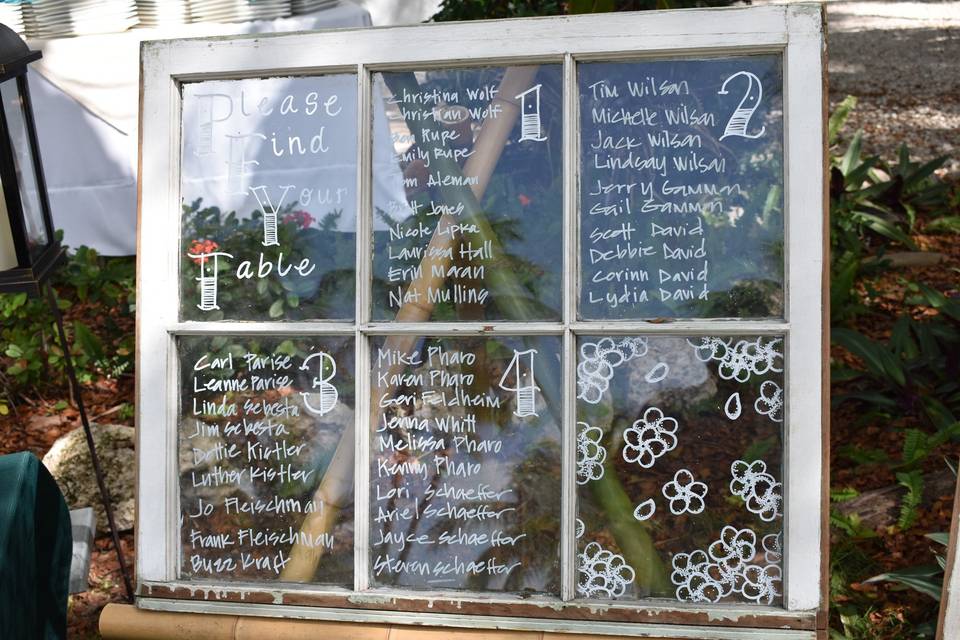 Please
Find
Your
Table
1
Christina Wolf
Christian Wolf
Rupe
Emily Rupe
Aleman
Jones
Nicole Lipka
Laurissa Hall
Erin Maran
Nat Mullins
2
Tim Wilson
Michelle Wilson
Jack Wilson
Lindsay Wilson
Jerry Gammon
Gail Gammon
Scott David
Debbie David
Corinn David
Lydia David
3
Carl Parise
Leanne Parise
Linda Sebesta
Jim Sebesta
Dottie Kistler
Luther Kistler
Jo Fleischman
Frank Fleischman
Buzz Kraft
4
Mike Pharo
Karen Pharo
Geri Feldheim
Jenna Whitt
Melissa Pharo
Kenny Pharo
Lori Schaeffer
Ariel Schaeffer
Jayce Schaeffer
Steven Schaeffer